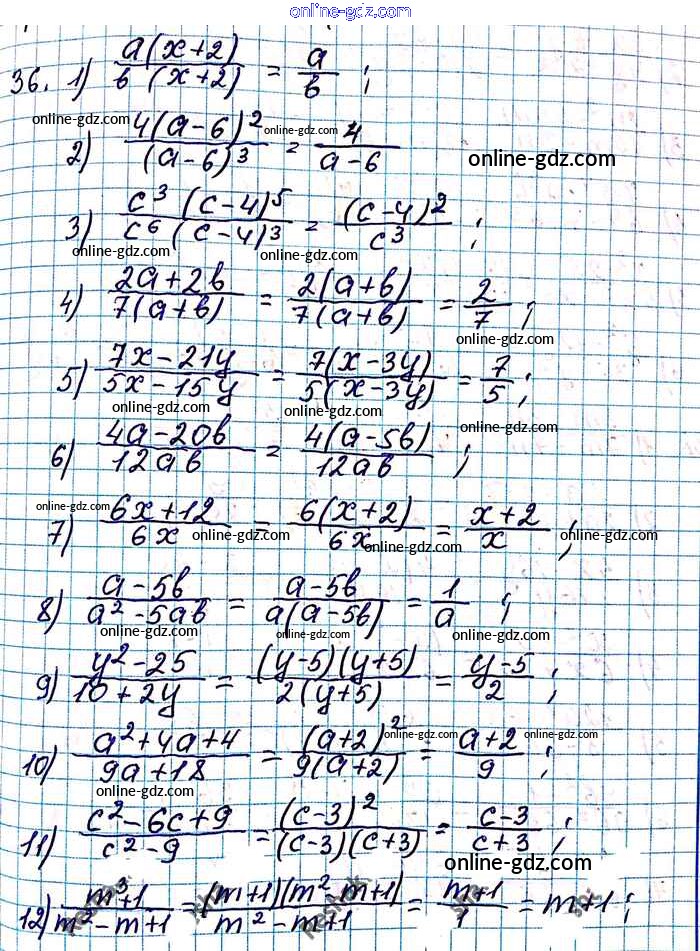 online-gdz.com
36. 1) a(x+2)/b(x+2) = a/b ;
online-gdz.com
2) 4(a-6)²/(a-6)³ = 4/a-6
online-gdz.com
online-gdz.com
3) c³(c-4)⁵/c⁶(c-4)³ = (c-4)²/c³ ;
online-gdz.com online-gdz.com
4) 2a+2b/7(a+b) = 2(a+b)/7(a+b) = 2/7 ;
online-gdz.com
5) 7x-21y/5x-15y = 7(x-3y)/5(x-3y) = 7/5 ;
online-gdz.com online-gdz.com
online-gdz.com
6) 4a-20b/12ab = 4(a-5b)/12ab ;
online-gdz.com
7) 6x+12/6x = 6(x+2)/6x = x+2/x ;
online-gdz.com online-gdz.com
8) a-5b/a²-5ab = a-5b/a(a-5b) = 1/a ;
online-gdz.com online-gdz.com online-gdz.com
9) y²-25/10+2y = (y-5)(y+5)/2(y+5) = y-5/2 ;
online-gdz.com online-gdz.com online-gdz.com
10) a²+4a+4/9a+18 = (a+2)²/9(a+2) = a+2/9 ;
online-gdz.com
11) c²-6c+9/c²-9 = (c-3)²/(c-3)(c+3) = c-3/c+3 ;
online-gdz.com
12) m³+1/m²-m+1 = (m+1)(m²-m+1)/m²-m+1 = m+1/1 = m+1 ;